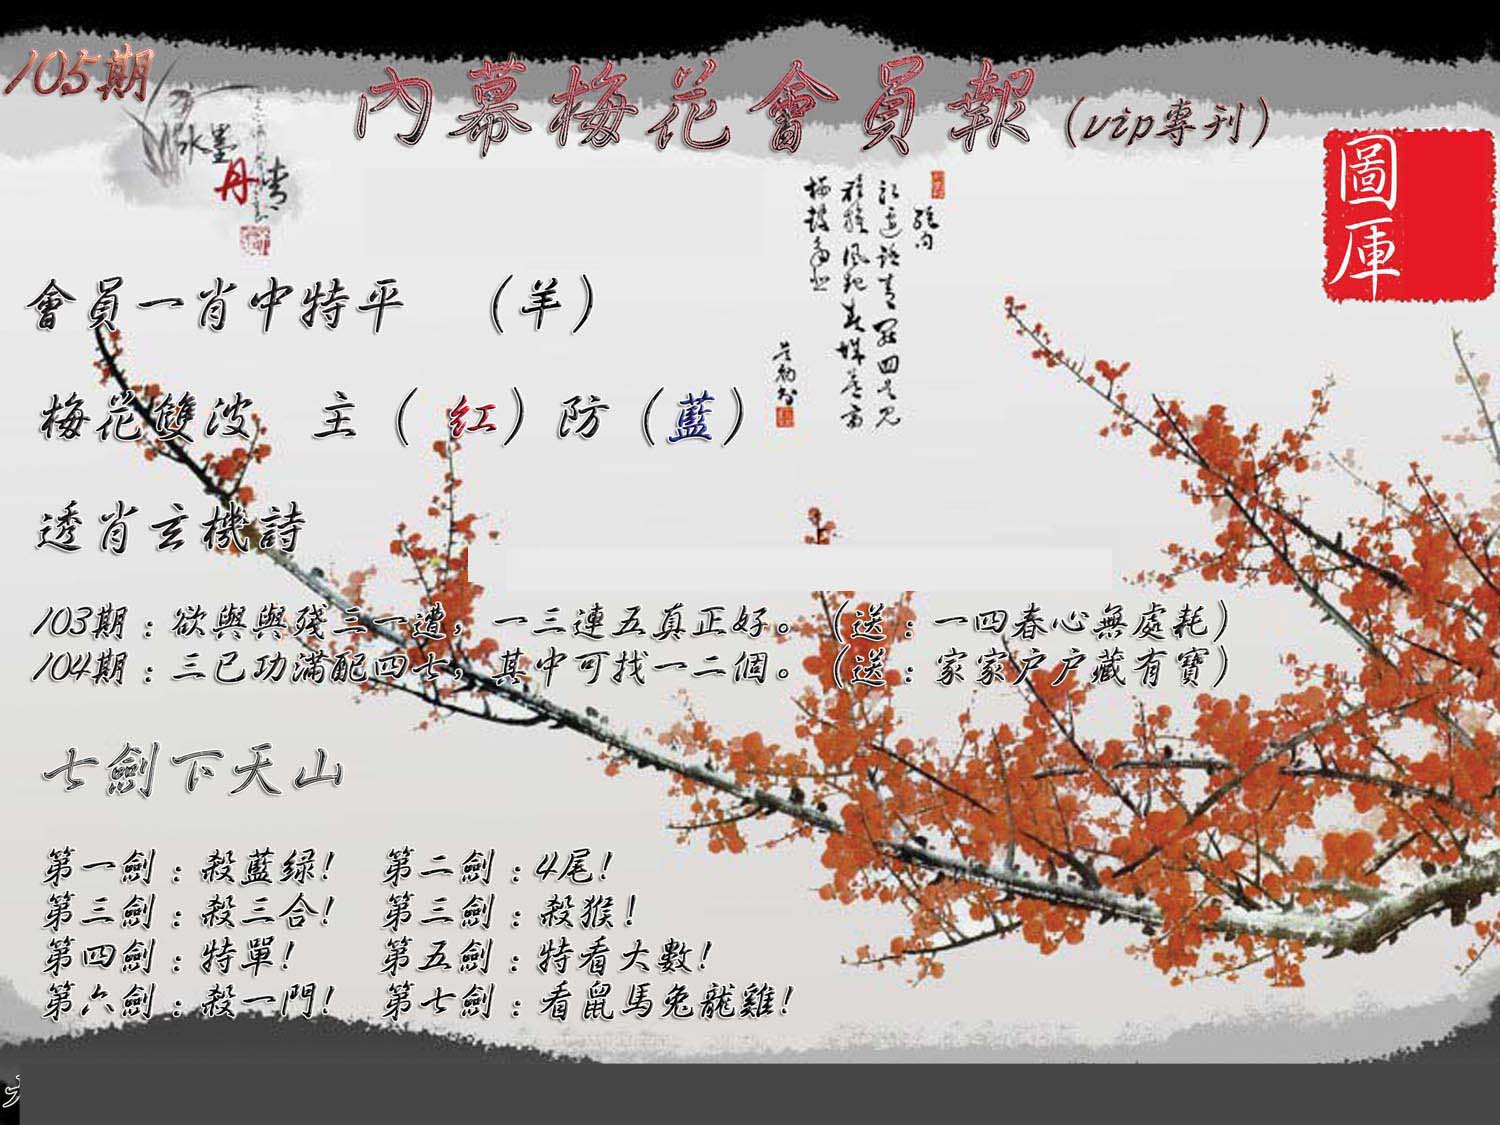 105期
內幕梅花會員報（vip專刊）
水墨
丹青
圖庫
會員一肖中特平 （羊）
梅花雙波 主（紅）防（藍）
透肖玄機詩
103期：欲與與殘三一遭，一三連五真正好。（送：一四春心無處耗）
104期：三已功滿配四七，其中可找一二個。（送：家家户户藏有寶）
七劍下天山
第一劍：殺藍綠！ 第二劍：4尾！
第三劍：殺三合！ 第三劍：殺猴！
第四劍：特單！ 第五劍：特看大數！
第六劍：殺一門！ 第七劍：看鼠馬兔龍雞！